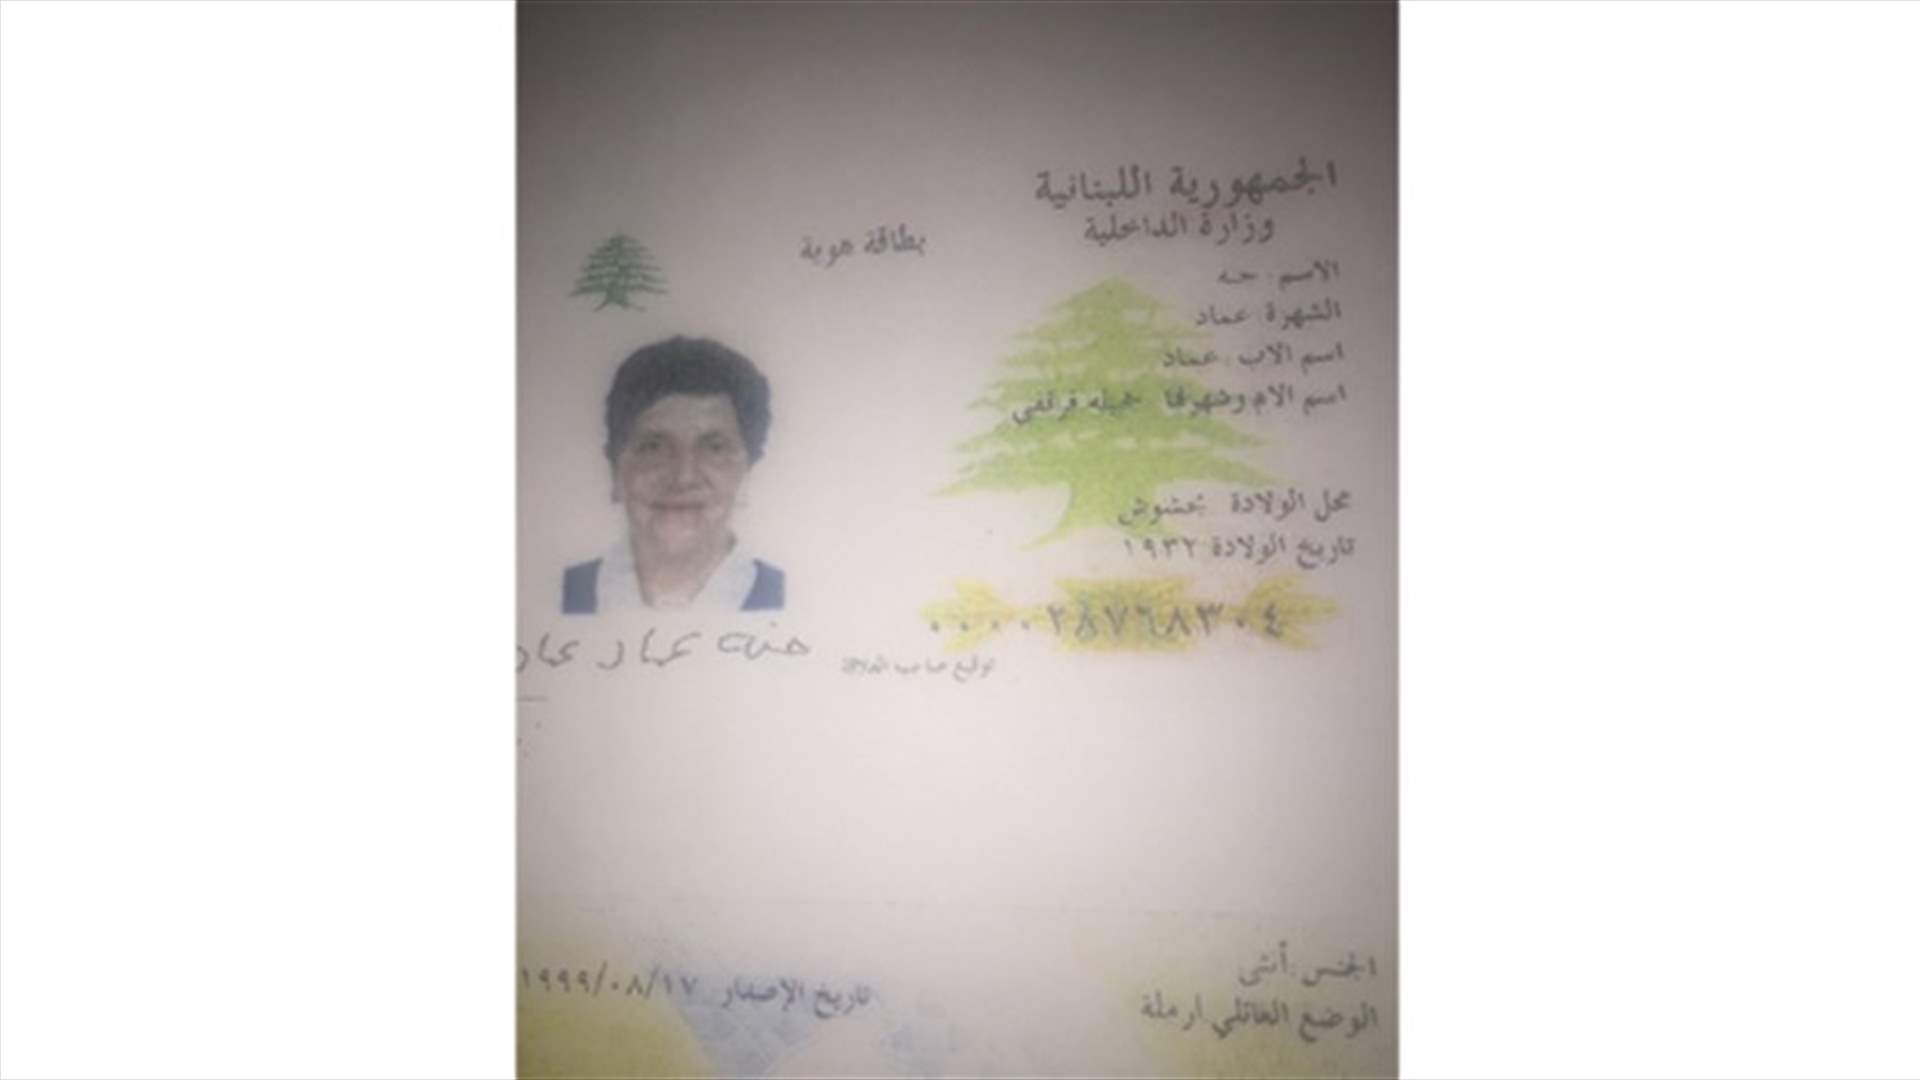 الجمهورية اللبنانية
وزارة الداخلية
بطاقة هوية
الاسم: حنه
الشهرة: عماد
اسم الاب: عماد
اسم الام وشهرتها جميله
محل الولادة بخشنوش
تاريخ الولادة ١٩٣٢
٠٠٠٠٢٨٧٦٨٣٠٤
توقيع صاحب العلاقة
حنه عماد عماد
الجنس: أنثى
الوضع العائلي: ارملة
تاريخ الإصدار ١٩٩٩/٠٨/١٧